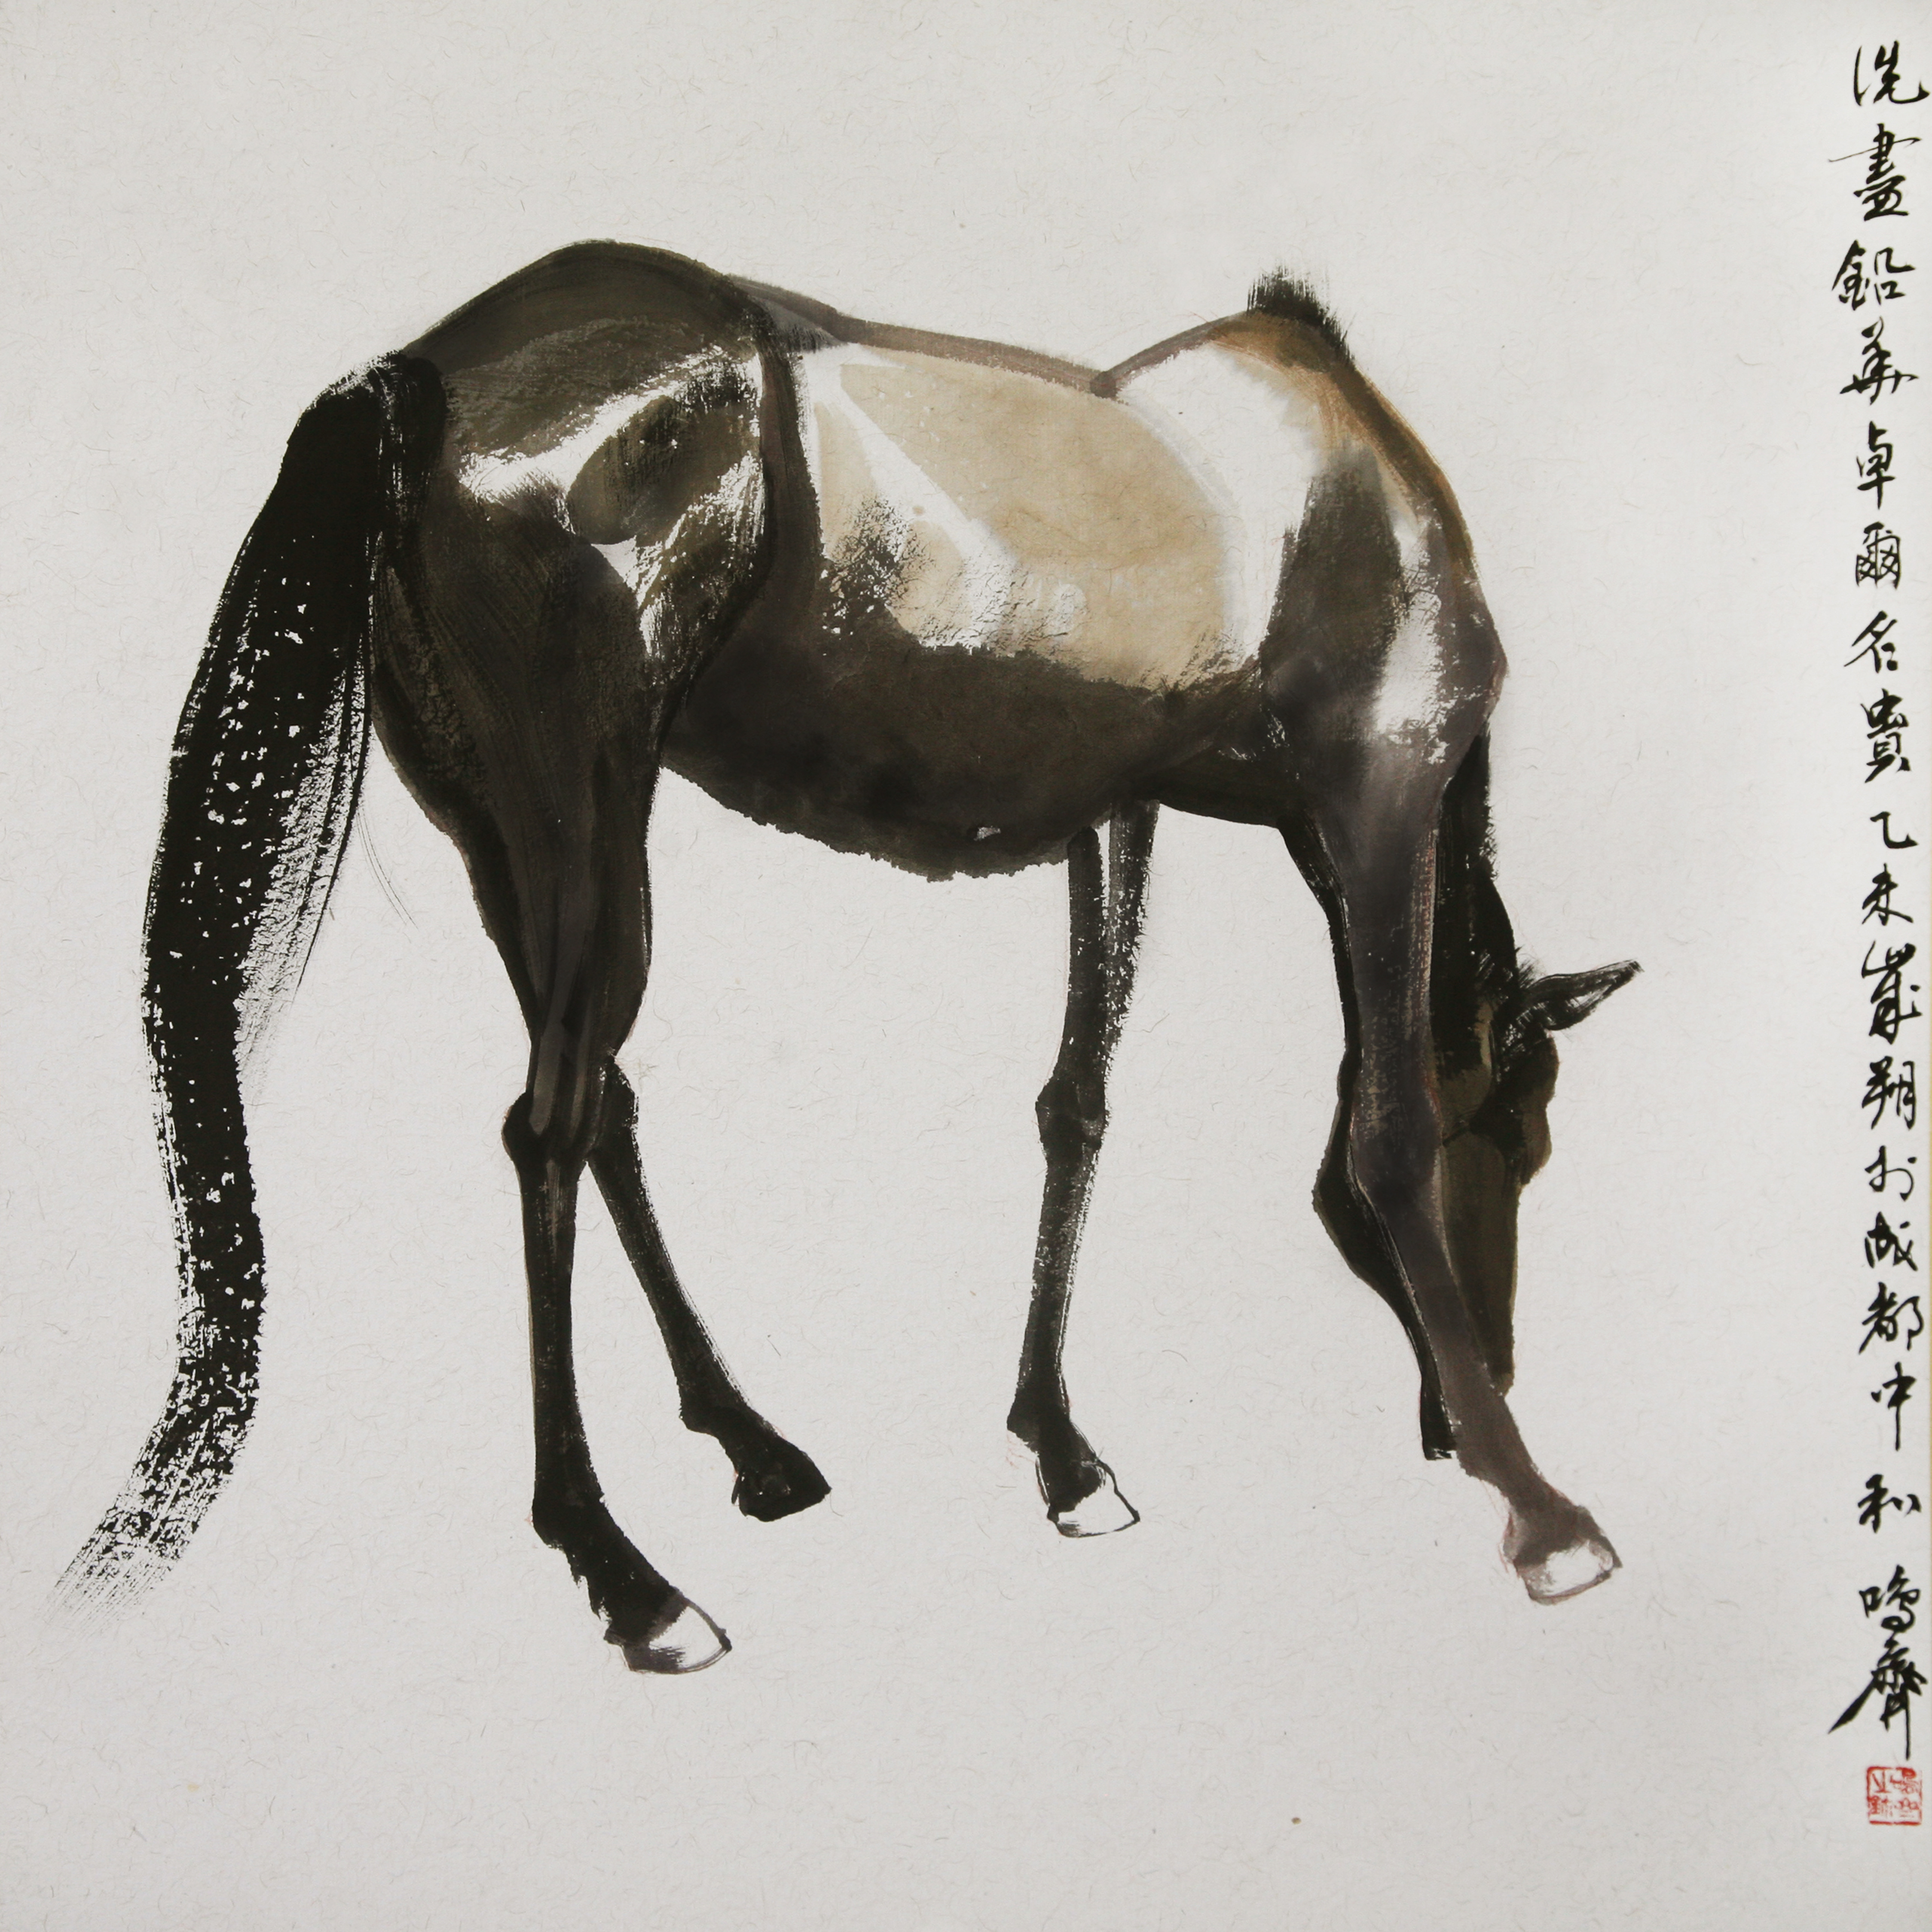 洗盡鉛華卓爾名貴乙未歲朔於成都中和鳴齋